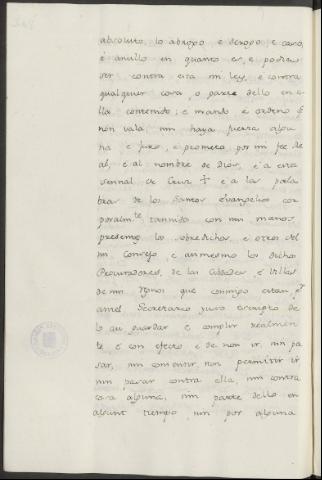 absoluto, lo abrogo e derogo e caso,
e anullo en quanto es, e podria
ser contra esta mi ley, e contra
qualquier cosa, o parte dello en e-
lla contenido; e mando e ordeno q̃
non vala, nin haya fuerza algu
na e juro, e prometo, por mi fee re
al, e al nombre de Dios, e a esta
sennal de Cruz † e a las pala
bras de los Santos Evangelios cor
poralmte tannido con mis manos
presentes los sobredichos, e otros del
mi Consejo, e asimesmo los dichos
Procuradores, de las Cibdades, e Villas
de mis Rgnos que conmigo estan, e
antel Secretario yuso escripto de
lo assi guardar e complir realmen
te e con efecto e de non ir, nin pa
sar, nin consentir, nin permitir ir
nin pasar contra ella, nin contra
cosa alguna, nin parte dello en
algunt tiempo, nin por alguna